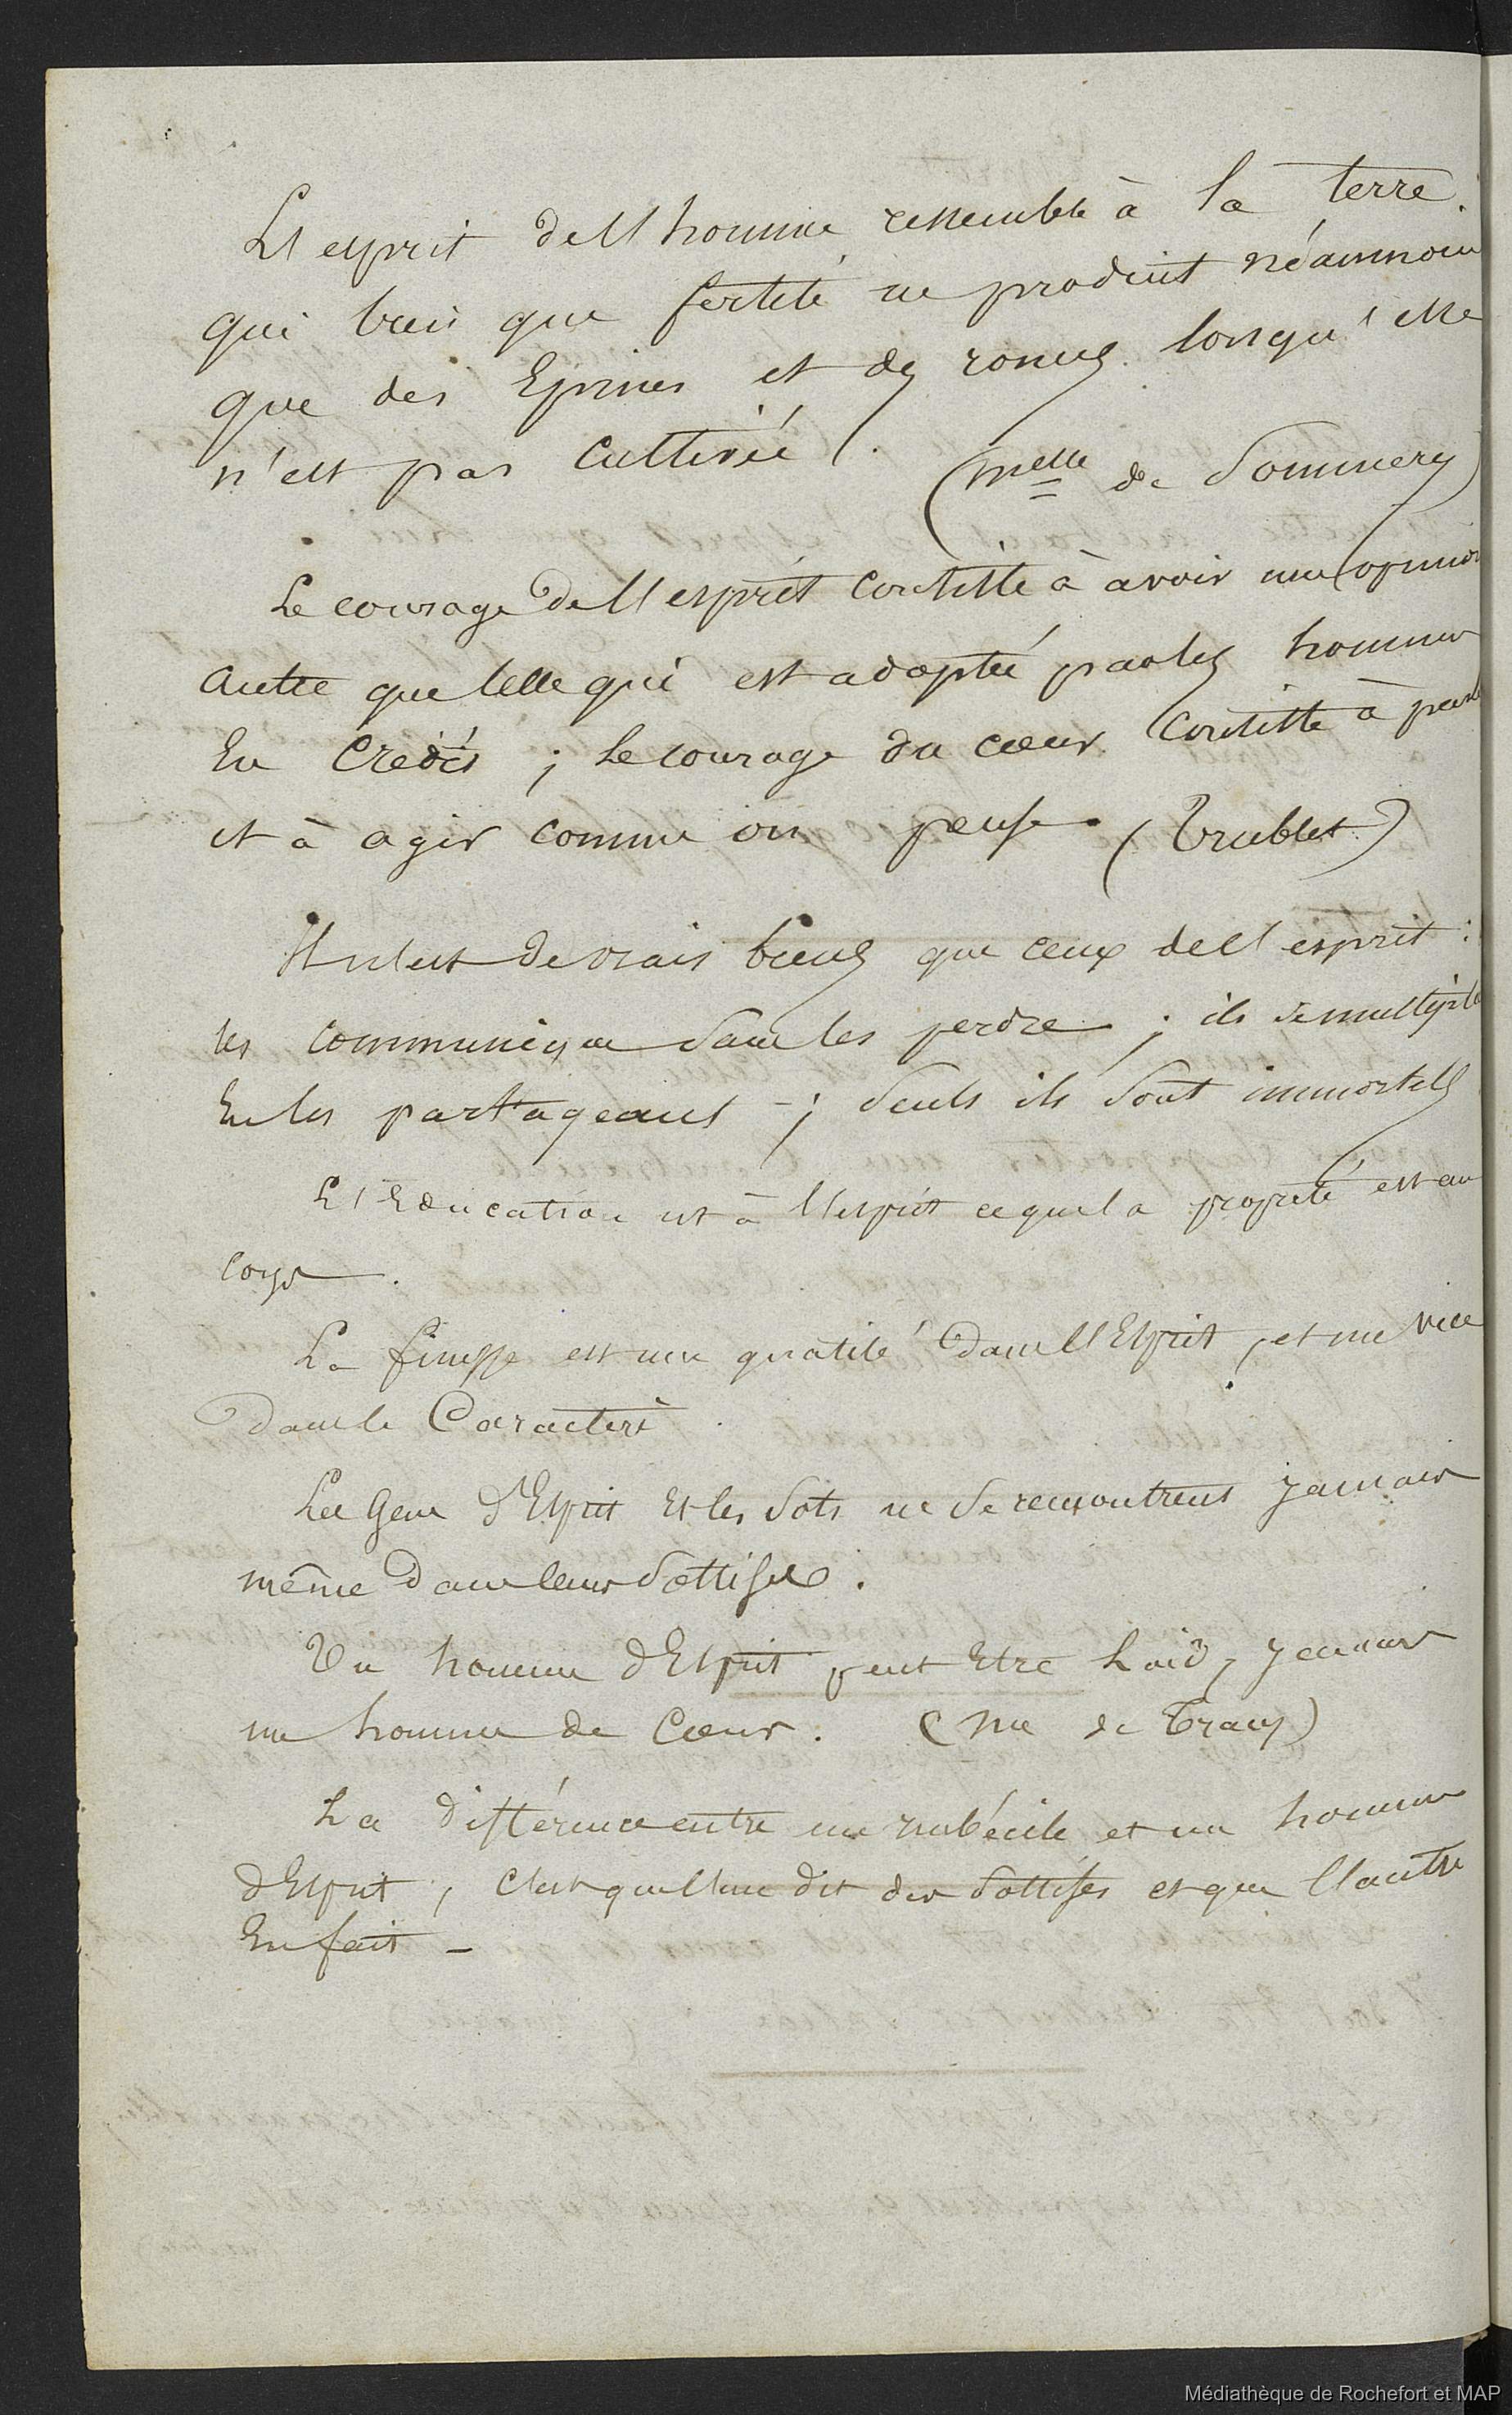 L'esprit de l'homme ressemble à la terre.
qui bien que fertile ne produit néanmoin
que des Epines et des ronces lorsqu'elle
n'est pas cultivée. (Melle de Sommery)
Le courage de l'esprit consiste à avoir une opinion
autre que celle qui est adoptée par les hommes
En Crédit ; le courage du cœur consiste à parl
et à agir comme on pense. (Trublet)
Il n'est de vrais biens que ceux de l'esprit :
les communique sans les perdre ; ils se multiplie
En les partageant - ; seuls ils sont immortels
L'Education est à l'esprit ce que la propreté est au
corps.
La finesse est une qualité dans l'Esprit, et un vice
dans le Caractère.
Les Gens d'Esprit et les sots ne se rencontrent jamais
même dans leurs sottises.
Un homme d'Esprit peut Etre Laid, jamais
un homme de Cœur. (Me de Tracy)
La différence entre un imbécile et un homme
d'Esprit, c'est que l'un dit des sottises et que l'autre
En fait -
Médiathèque de Rochefort et MAP